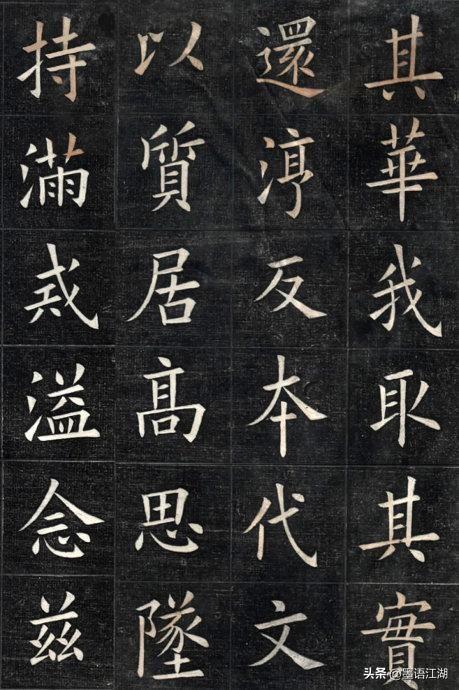 其華我取其實
還淳反本代文
以質居高思墜
持滿戒溢念茲
头条@墨语江湖